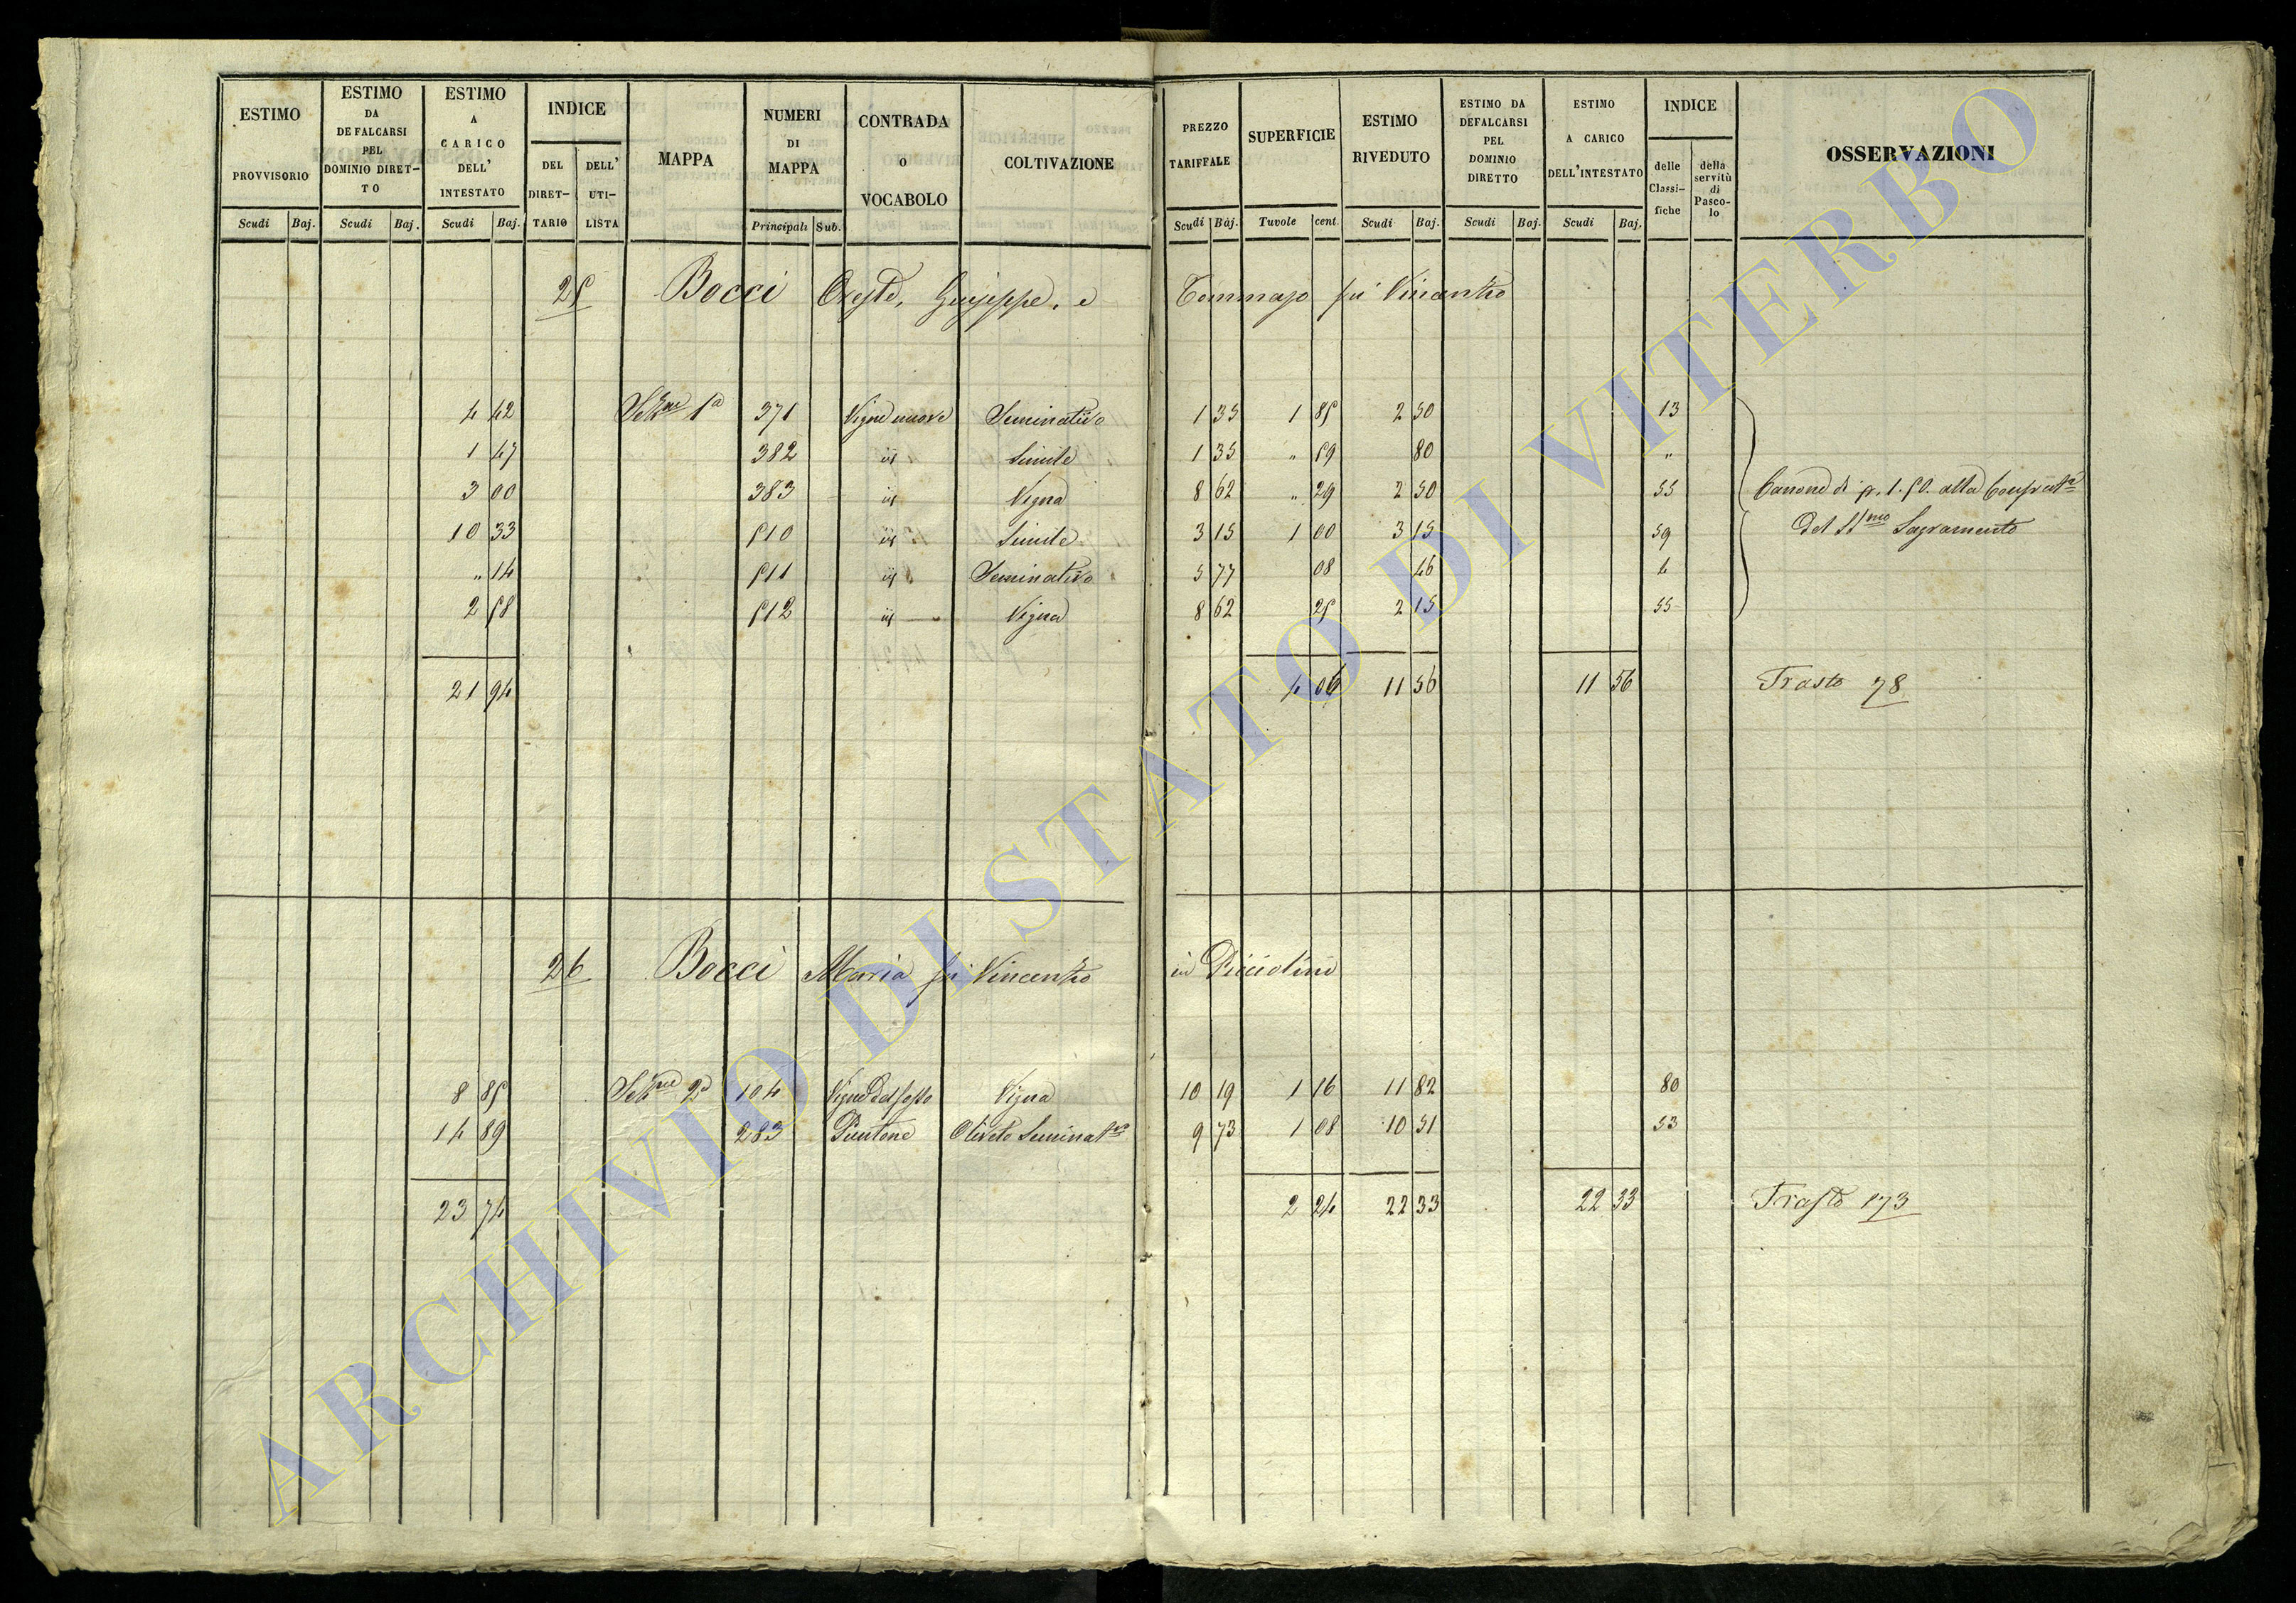 ESTIMO PROVVISORIO Scudi Baj.
ESTIMO DA DEFALCARSI PEL DOMINIO DIRET-TO Scudi Baj.
ESTIMO A CARICO DELL' INTESTATO Scudi Baj.
INDICE DEL DIRET-TARIO DELL' UTI-LISTA
MAPPA
NUMERI DI MAPPA Principali Sub.
CONTRADA O VOCABOLO
COLTIVAZIONE
PREZZO TARIFFALE Scudi Baj.
SUPERFICIE Tavole cent.
ESTIMO RIVEDUTO Scudi Baj.
ESTIMO DA DEFALCARSI PEL DOMINIO DIRETTO Scudi Baj.
ESTIMO A CARICO DELL'INTESTATO Scudi Baj.
INDICE delle Classi-fiche della servitù di Pasco-lo
OSSERVAZIONI
25 Bocci Oreste, Giuseppe, e Tommaso fu Vincenzo
4 42 Sez.ne 1a 371 Vigne nuove Seminativo 1 35 1 85 2 50 13
1 47 382 id Simile 1 35 " 59 80 "
3 00 383 id Vigna 8 62 " 29 2 50 55 Canone di p. 1.50 alla
10 33 510 id Simile 3 15 1 00 3 15 59 del SS.mo Sagramento
" 14 511 id Seminativo 5 77 08 46 4
2 58 512 id Vigna 8 62 25 2 15 55
21 94 4 06 11 56 11 56 Trasto 78
26 Bocci Maria fu Vincenzo in Picciolini
8 85 Sez.ne 2a 104 Vigne del fosso Vigna 10 19 1 16 11 82 80
14 89 283 Puntone Oliveto Seminat.vo 9 73 1 08 10 51 53
23 74 2 24 22 33 22 33 Trasto 173
ARCHIVIO DI STATO DI VITERBO